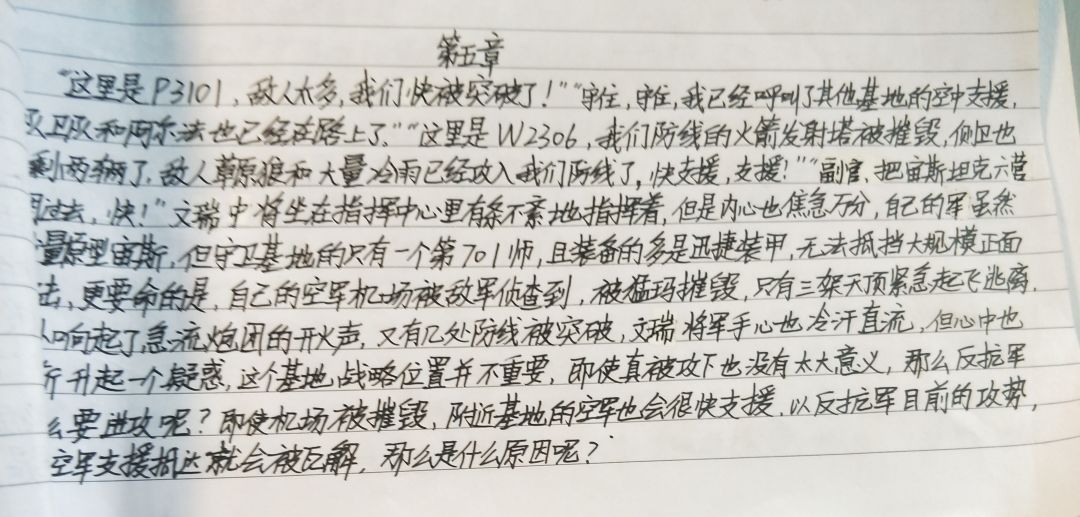 第五章
“这里是P3101，敌人太多，我们快被突破了！”“守住，守住，我已经呼叫了其他基地的空中支援，
卫队和阿尔法也已经在路上了。”“这里是W2306，我们防线的火箭发射塔被摧毁，侧卫也
剩小两辆了，敌人草原狼和大量冷雨已经攻入我们防线了，快支援，支援！”“副官，把宙斯坦克六营
过去，快！”文瑞中将坐在指挥中心里有条不紊地指挥着，但是内心也焦急万分，自己的军虽然
量原型宙斯，但守卫基地的只有一个第701师，且装备的多是迅捷装甲，无法抵挡大规模正面
击，更要命的是，自己的空军机场被敌军侦查到，被猛玛摧毁，只有三架天顶紧急起飞逃离。
响起了急流炮团的开火声，又有几处防线被突破，文瑞将军手心也冷汗直流，但心中也
升起一个疑惑，这个基地战略位置并不重要，即使真被攻下也没有太大意义，那么反抗军
么要进攻呢？即使机场被摧毁，附近基地的空军也会很快支援，以反抗军目前的攻势，
空军支援抵达就会被瓦解，那么是什么原因呢？